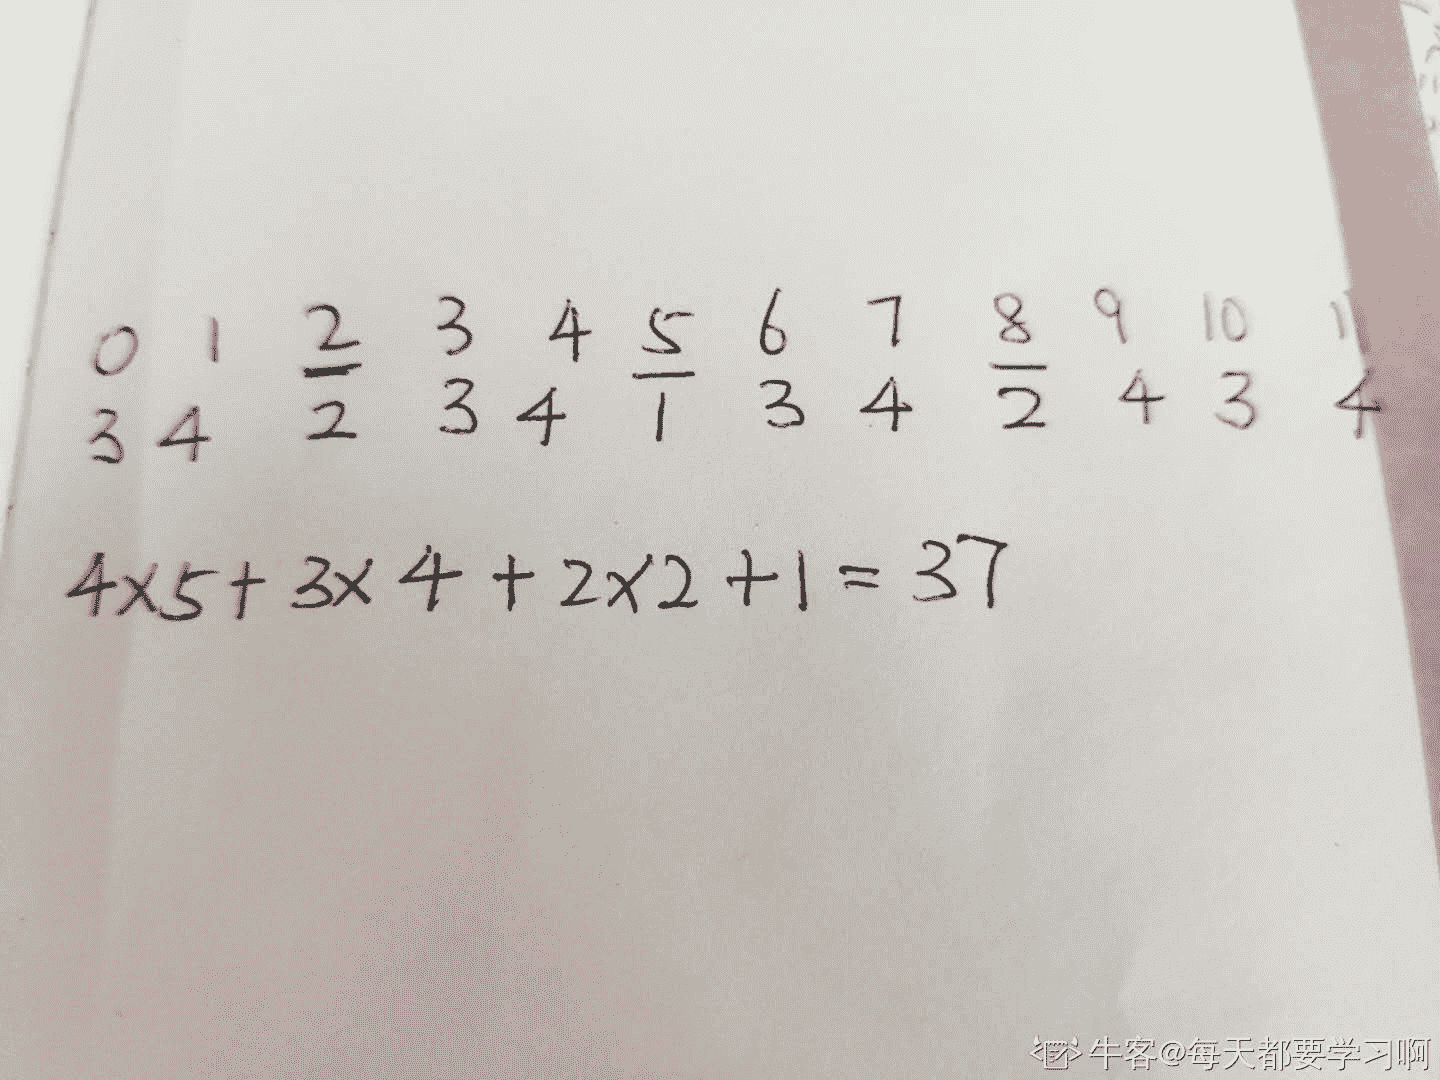 0 1 2 3 4 5 6 7 8 9 10 11
3 4 2 3 4 1 3 4 2 4 3 4
4×5+3×4+2×2+1=37
牛客@每天都要学习啊